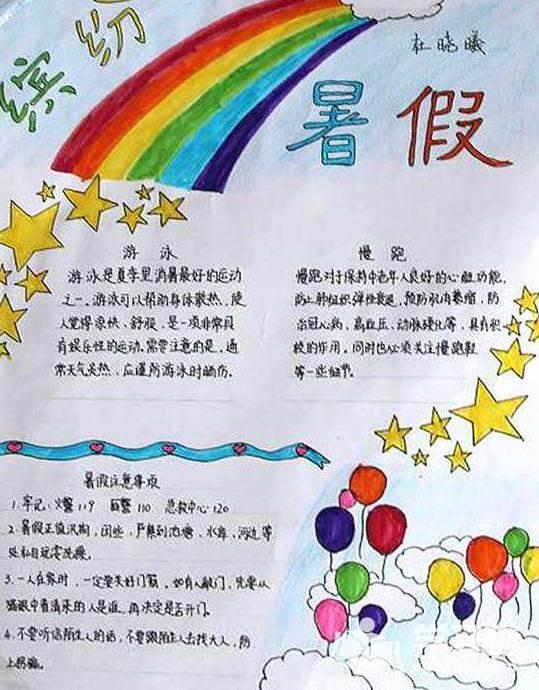 缤纷
杜晓曦
暑假
游泳
游泳是夏季里消暑最好的运动
之一。游泳可以帮助身体散热,使
人觉得凉快、舒服,是一项非常具
有娱乐性的运动。需要注意的是,通
常天气炎热,应谨防游泳时晒伤。
慢跑
慢跑对于保持中老年人良好的心脏功能,
防止肺组织弹性衰退,预防肌肉萎缩,防
治冠心病、高血压、动脉硬化等,具有积
极的作用。同时也必须关注慢跑鞋
等一些细节。
暑假注意事项
1.牢记:火警119 匪警110 急救中心120
2.暑假正值汛期,因此,严禁到池塘、水库、河边等
处私自玩耍洗澡。
3.一人在家时,一定要关好门窗。如有人敲门,先要从
猫眼中看清来的人是谁,再决定是否开门。
4.不要听信陌生人的话,不要跟陌生人去找大人,防
上拐骗。